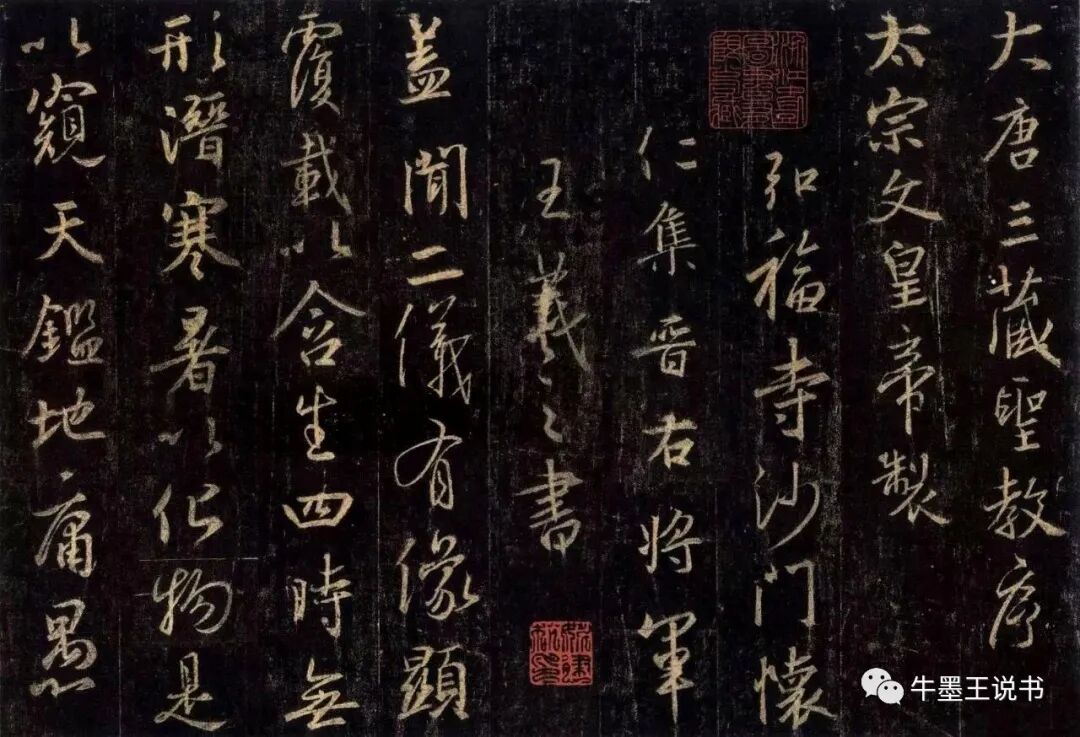 大唐三藏聖教序
太宗文皇帝製
弘福寺沙門懷
仁集晉右將軍
王羲之書
蓋聞二儀有像顯
覆載以含生四時無
形潛寒暑以化物是
以窺天鑑地庸愚
牛墨王说书